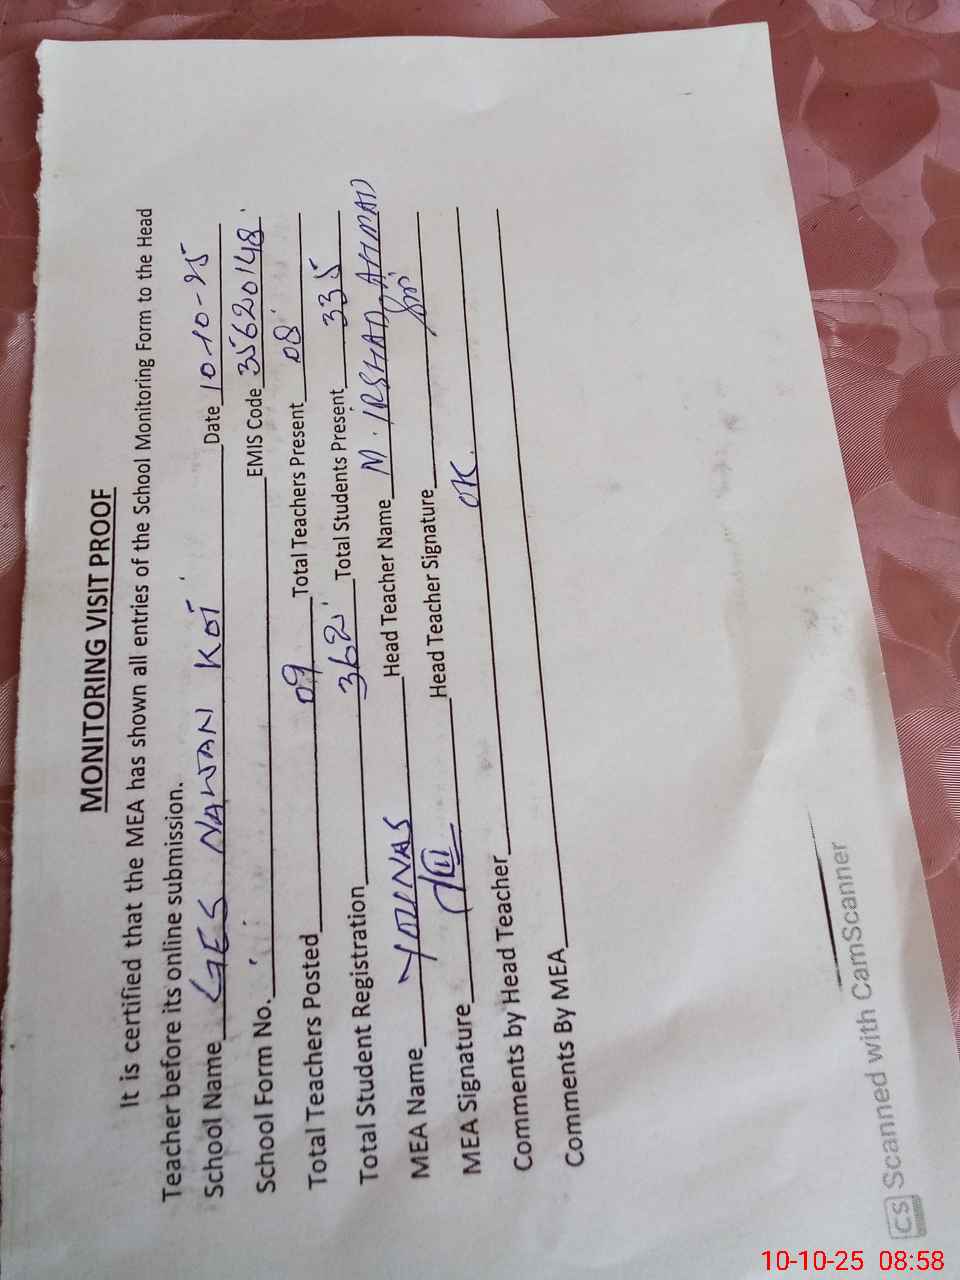 MONITORING VISIT PROOF
It is certified that the MEA has shown all entries of the School Monitoring Form to the Head
Teacher before its online submission.
School Name GES NAWAN KOT Date 10-10-25
School Form No. EMIS Code 35620148
Total Teachers Posted 09 Total Teachers Present 08
Total Student Registration 362 Total Students Present 335
MEA Name YOUNAS Head Teacher Name M. IRSHAD AHMAD
MEA Signature Head Teacher Signature
Comments by Head Teacher OK.
Comments By MEA
CS Scanned with CamScanner
10-10-25 08:58